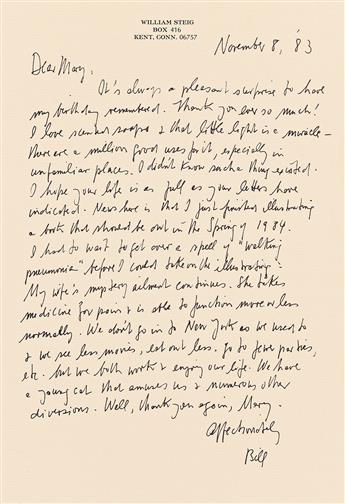 WILLIAM STEIG
BOX 416
KENT, CONN. 06757
November 8, '83
Dear Mary,
It's always a pleasant surprise to have
my birthday remembered. Thank you ever so much!
I love scented soaps & that little light is a miracle –
there are a million good uses for it, especially in
unfamiliar places. I didn't know such a thing existed.
I hope your life is as full as your letters have
indicated. News here is that I just finished illustrating
a book that should be out in the Spring of 1984.
I had to wait to get over a spell of "walking
pneumonia" before I could take on the illustrating.
My wife's mystery ailment continues. She takes
medicine for pain & is able to function more or less
normally. We don't go in to New York as we used to
& we see less movies, eat out less, go to few parties,
etc. but we both work & enjoy our life. We have
a young cat that amuses us & numerous other
diversions. Well, thank you again, Mary.
Affectionately
Bill